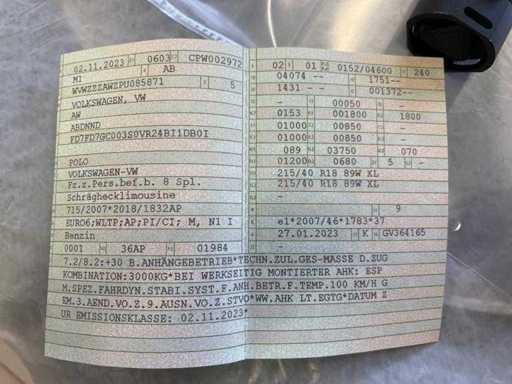 02.11.2023 0603 CPW002972
AB
M1
WVWZZZAWZPU085871 5
VOLKSWAGEN, VW
AW
ABDNND
FD7FD7GC003S0VR24BI1DB0I
POLO
VOLKSWAGEN-VW
Fz.z.Pers.bef.b. 8 Spl.
Schräghecklimousine
715/2007*2018/1832AP
EURO6;WLTP;AP;PI/CI; M, N1 I
Benzin
0001 36AP 01984
02 01 0152/04600 240
04074 -- 1751--
1431 -- -- 001372--
- 00050 --
0153 001800 1800
01000 00850 --
01000 00850 --
089 03750 070
01200 0680 5 -
215/40 R18 89W XL
215/40 R18 89W XL
-
- 9
e1*2007/46*1783*37
27.01.2023 K GV364165
7.2/8.2:+30 B.ANHÄNGEBETRIEB*TECHN.ZUL.GES-MASSE D.ZUG
KOMBINATION:3000KG*BEI WERKSEITIG MONTIERTER AHK: ESP
M.SPEZ.FAHRDYN.STABI.SYST.F.ANH.BETR.F.TEMP.100 KM/H G
EM.3.AEND.VO.Z.9.AUSN.VO.Z.STVO*WW.AHK LT.EGTG*DATUM Z
UR EMISSIONSKLASSE: 02.11.2023*